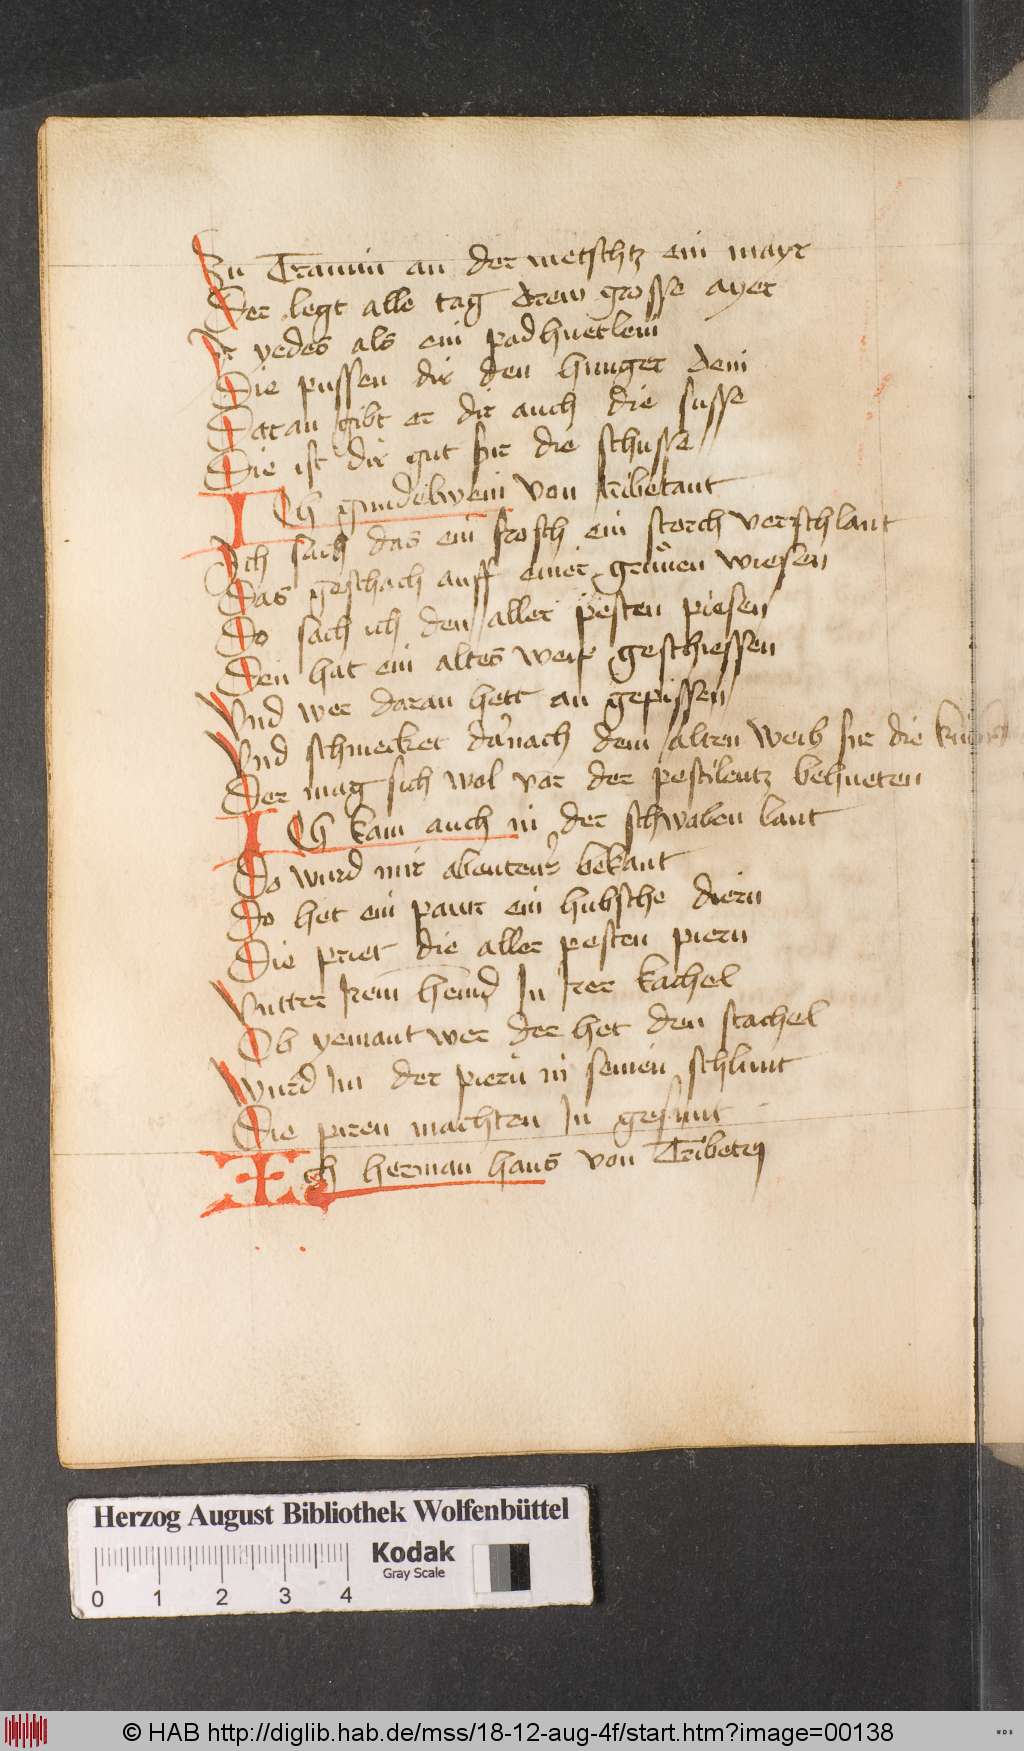 Zu Tramin an der metschtz ein mayr
Der legt alle tag drew grosse ayer
Ir yedes als ein padhuetlein
Die pussen dir den hunger dein
Daran gibt er dir auch die susse
Die ist dir gut fur die schusse
ICh gundelwein von tribetant
Ich sach das ein frosch ein storch verschlant
Das geschach auff einer grunen wiesen
Do sach ich den aller pesten piesen
Den hat ein altes weip geschiessen
Vnd wer daran hett an gepissen
Vnd schmecket darnach dem alten weib fur die
Der mag sich wol vor der pestilentz behueten
ICh kam auch in der schwaben lant
Do wurd mir abenteur bekant
Do het ein paur ein hubsche diern
Die priet die aller pesten piern
Vntter Irem hemd In Irer kachel
Ob yemant wer der het den stachel
Wurd Im der piern in seinen schlunt
Die piren machten In gesunt
Ich herman hans von Tribetrij
Herzog August Bibliothek Wolfenbüttel
Kodak
Gray Scale
0 1 2 3 4
© HAB http://diglib.hab.de/mss/18-12-aug-4f/start.htm?image=00138